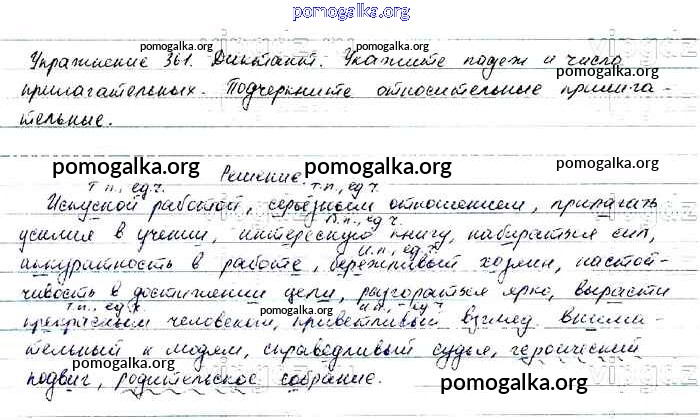 pomogalka.org
pomogalka.org pomogalka.org
Упражнение 361. Диктант. Укажите падеж и число
pomogalka.org
прилагательных. Подчеркните относительные прилага-
тельные.
pomogalka.org Решение. pomogalka.org
т.п., ед.ч. т.п., ед.ч.
Искусной работой, серьёзным отношением, прилагать
В.п., ед.ч.
усилия в учении, интересную книгу, набираться сил,
И.п., ед.ч.
аккуратность в работе, бережливый хозяин, настой-
чивость в достижении цели, разгораться ярко, вырасти
т.п., ед.ч. pomogalka.org И.п., ед.ч. pomogalka.org
прекрасным человеком, приветливый взгляд, внима-
тельный к людям, справедливый судья, героический
подвиг, родительское собрание.
pomogalka.org pomogalka.org